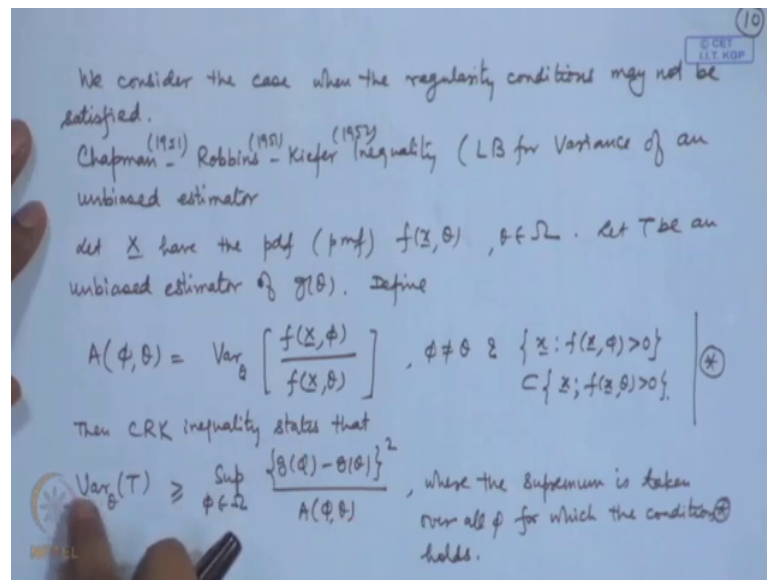 10
© CET
I.I.T. KGP
We consider the case when the regularity conditions may not be
satisfied.
Chapman (1951) - Robbins (1951) - Kiefer (1952) Inequality (LB for Variance of an
unbiased estimator
Let X have the pdf (pmf) f(x, θ), θ ∈ Ω. Let T be an
unbiased estimator of g(θ). Define
A(φ, θ) = Var_θ [ f(X, φ) / f(X, θ) ], φ ≠ θ & { x : f(x, φ) > 0 }
⊂ { x ; f(x, θ) > 0 }. | (*)
Then CRK inequality states that
Var_θ (T) ≥ Sup_{φ ∈ Ω} {g(φ) - g(θ)}² / A(φ, θ), where the supremum is taken
over all φ for which the condition (*)
holds.
NPTEL